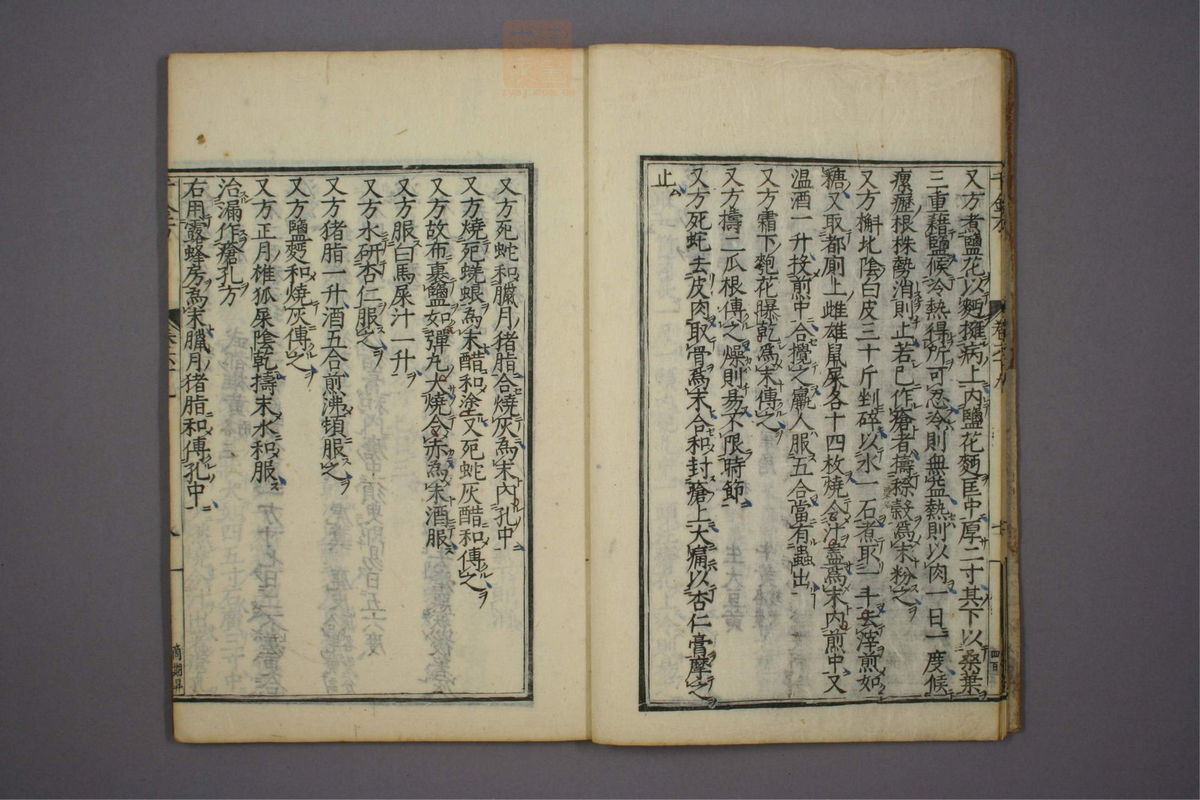 又方煮鹽花以麪擁病上內鹽花麪匡中厚二寸其下以桑葉
三重藉鹽候冷熱得所可忍冷則無益熱則以肉一日一度候
瘰癧根株勢消則止若已作瘡者擣穄穀爲末粉之
又方槲北陰白皮三十斤剉碎以水一石煮取一斗去滓煎如
糖又取都廁上雌雄鼠屎各十四枚燒令汁盡爲末內煎中又
温酒一升投煎中合攪之羸人服五合當有蟲出
又方霜下瓠花曝乾爲末傅之
又方擣二瓜根傅之燥則易不限時節
又方死蛇去皮肉取骨爲末合和封瘡上大痛以杏仁膏摩之
止
又方死蛇和臘月猪脂合燒灰爲末內孔中
又方燒死蜣蜋爲末醋和塗又死蛇灰醋和傅之
又方故布裹鹽如彈丸大燒令赤爲末酒服
又方服白馬屎汁一升
又方水研杏仁服之
又方猪脂一升酒五合煎沸頓服之
又方鹽麪和燒灰傅之
又方正月雄狐屎陰乾擣末水和服
治漏作瘡孔方
右用露蜂房爲末臘月猪脂和傅孔中